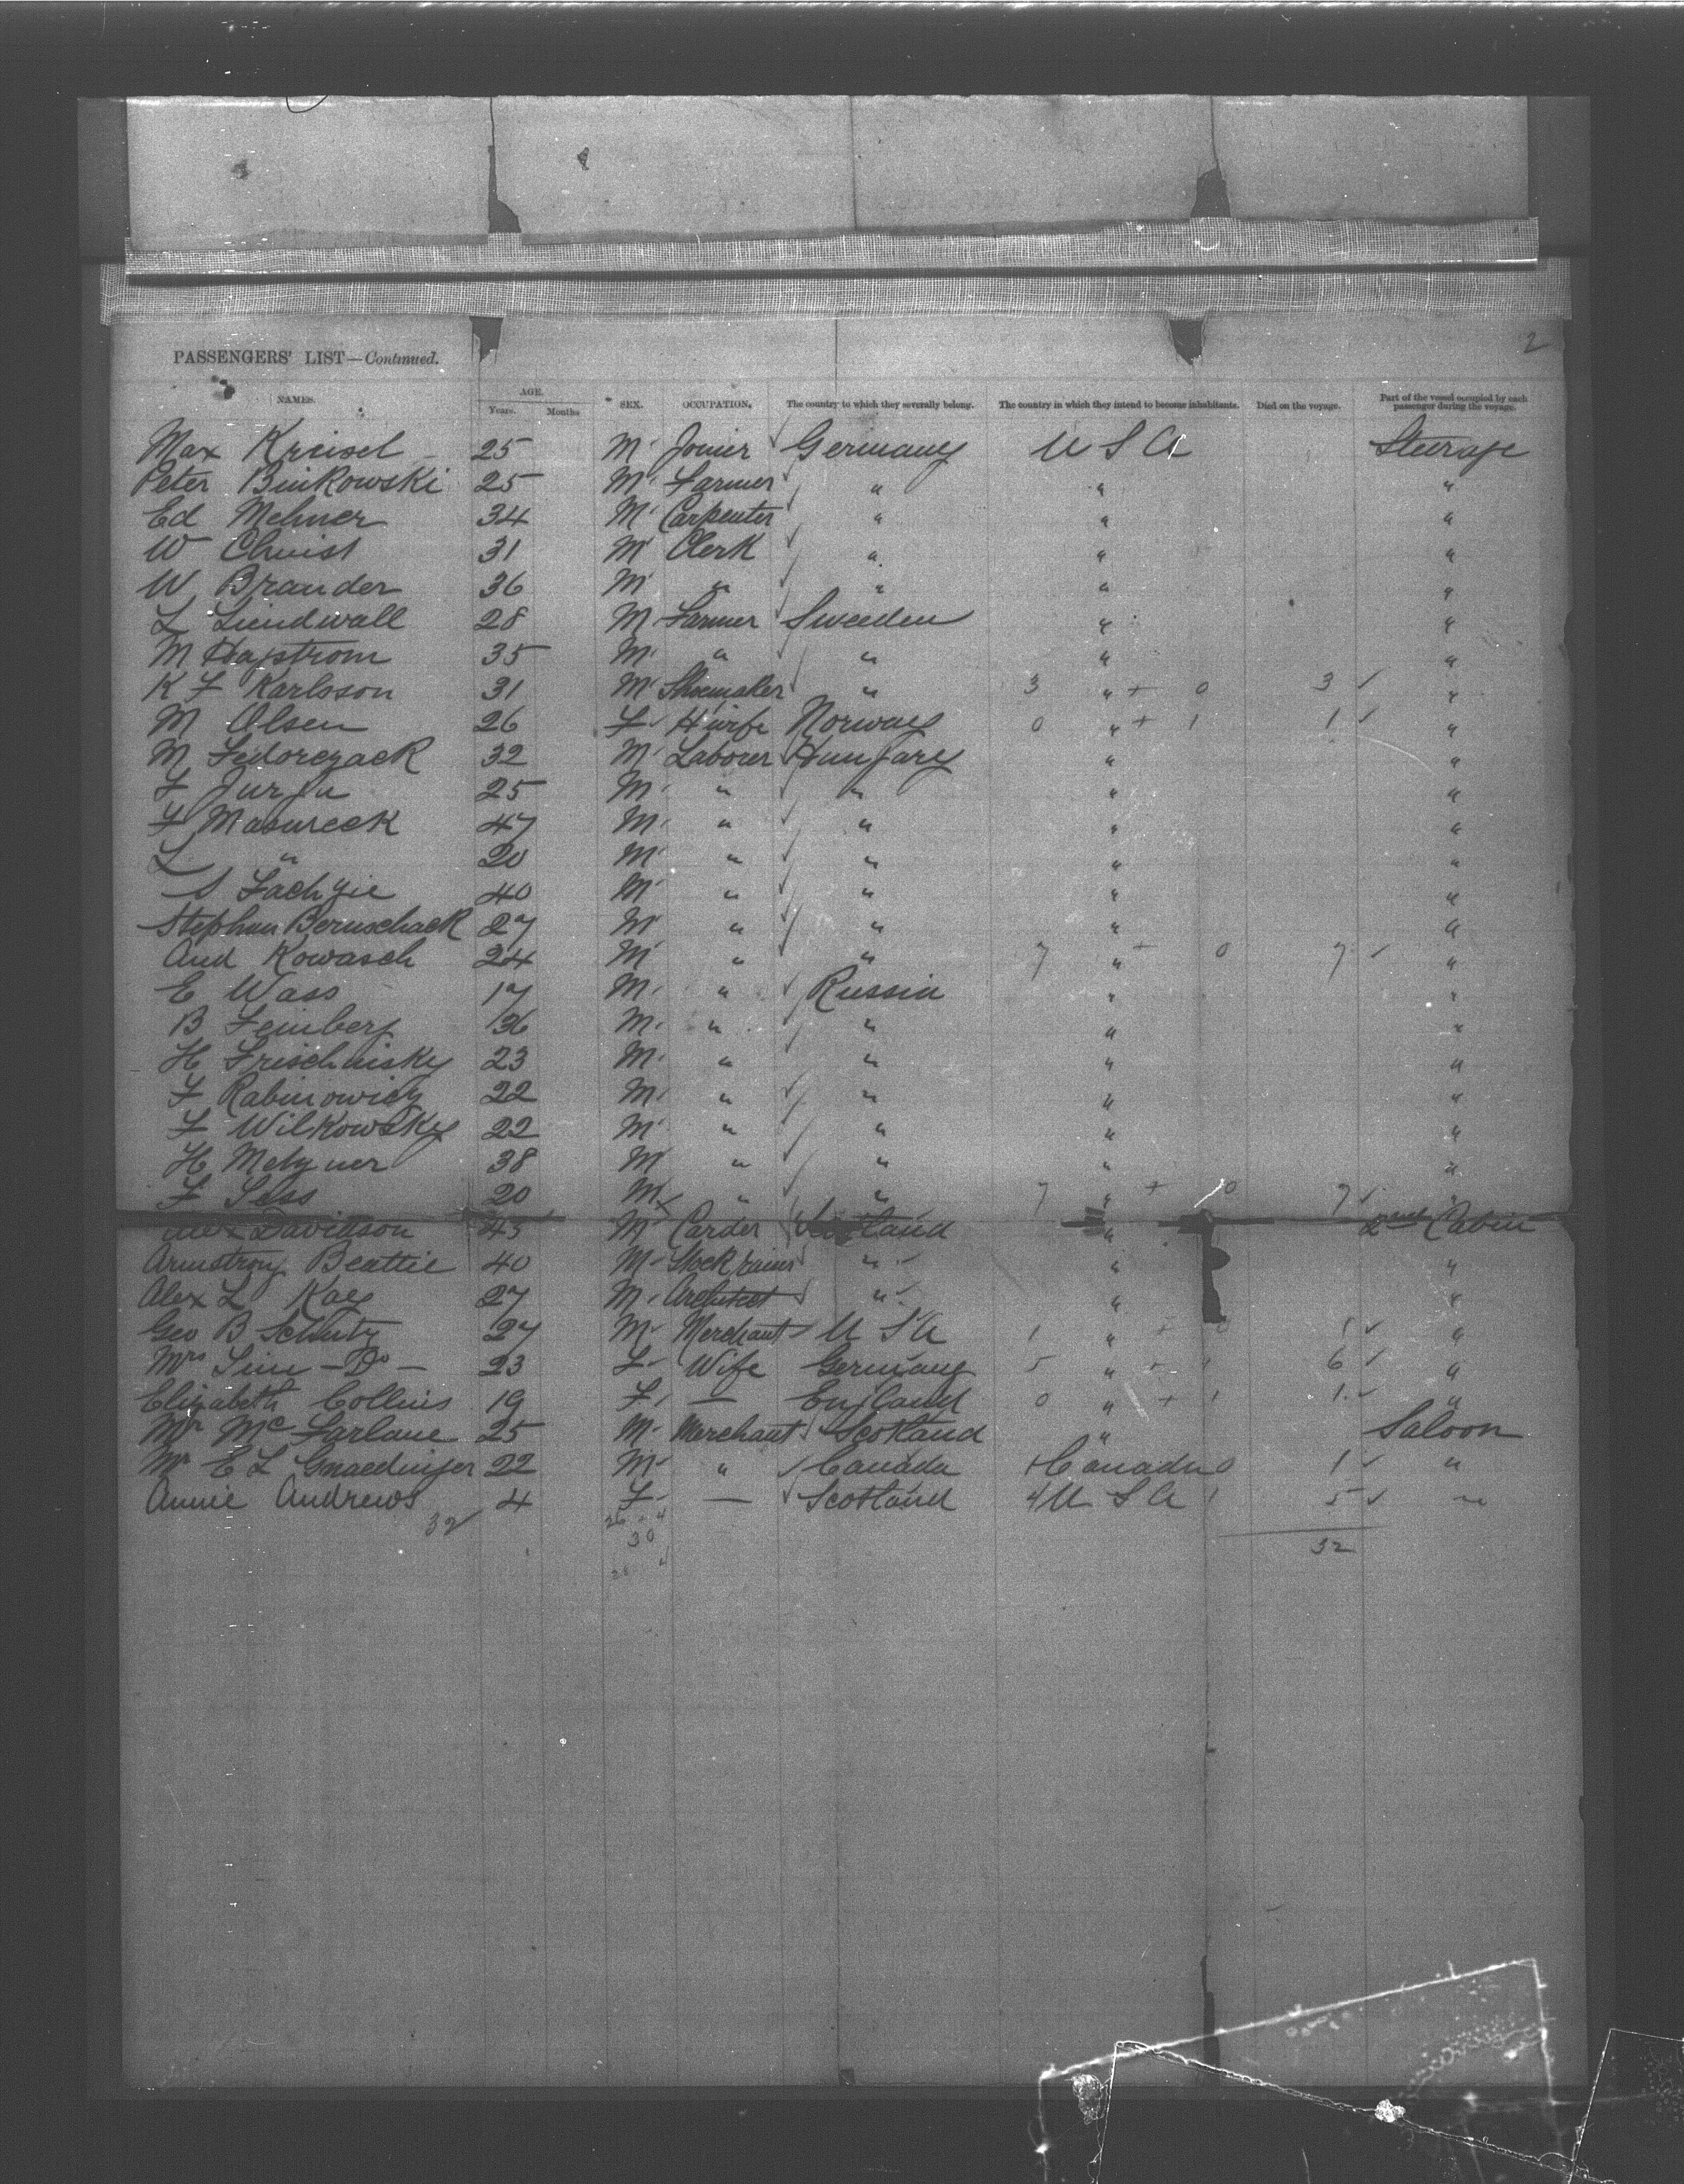 2
PASSENGERS' LIST—Continued.
NAMES. AGE. Years. Months SEX. OCCUPATION. The country to which they severally belong. The country in which they intend to become inhabitants. Died on the voyage. Part of the vessel occupied by each passenger during the voyage.
Max Kreisel 25 M Joiner Germany U S A Steerage
Peter Binkowski 25 M Farmer " " "
Ed Mehner 34 M Carpenter " " "
W Christ 31 M Clerk " " "
W Brander 36 M " " " "
L Liendwall 28 M Farmer Sweden " "
M Hagstrom 35 M " " " "
K F Karlsson 31 M Shoemaker " 3 " + 0 3 ✓ "
M Olsen 26 F H'wife Norway 0 " + 1 1 ✓ "
M Fedorczack 32 M Laborer Hungary " "
F Jurju 25 M " " " "
F Masureck 47 M " " " "
L " 20 M " " " "
S 40 M " " " "
Stephan Beruschack 27 M " " " "
And Kowasch 24 M " " 7 " + 0 7 ✓ "
E Wass 17 M " Russia " "
B Feinberg 36 M " " " "
H Frischnisky 23 M " " " "
F Rabinowicz 22 M " " " "
F Wilkowsky 22 M " " " "
H Metzner 38 M " " " "
F Sess 20 M " " 7 " + 0 7 ✓ "
Alex Davidson 45 M Carder " 2nd Cabin
Armstrong Beattie 40 M " " "
Alex L Kay 27 M Architect " " "
Geo B Schutz 27 M Merchant U S A 1 " + 0 1 ✓ "
Mrs – Do – 23 F Wife Germany 5 " + 1 6 ✓ "
Elizabeth Collins 19 F — England 0 " + 1 1 ✓ "
Mr McFarlane 25 M Merchant Scotland " Saloon
Mr E L Gnaedinger 22 M " Canada 1 Canada 0 1 ✓ "
Annie Andrews 4 F — Scotland 4 U S A 1 5 ✓ "
32 26 + 4
30 32